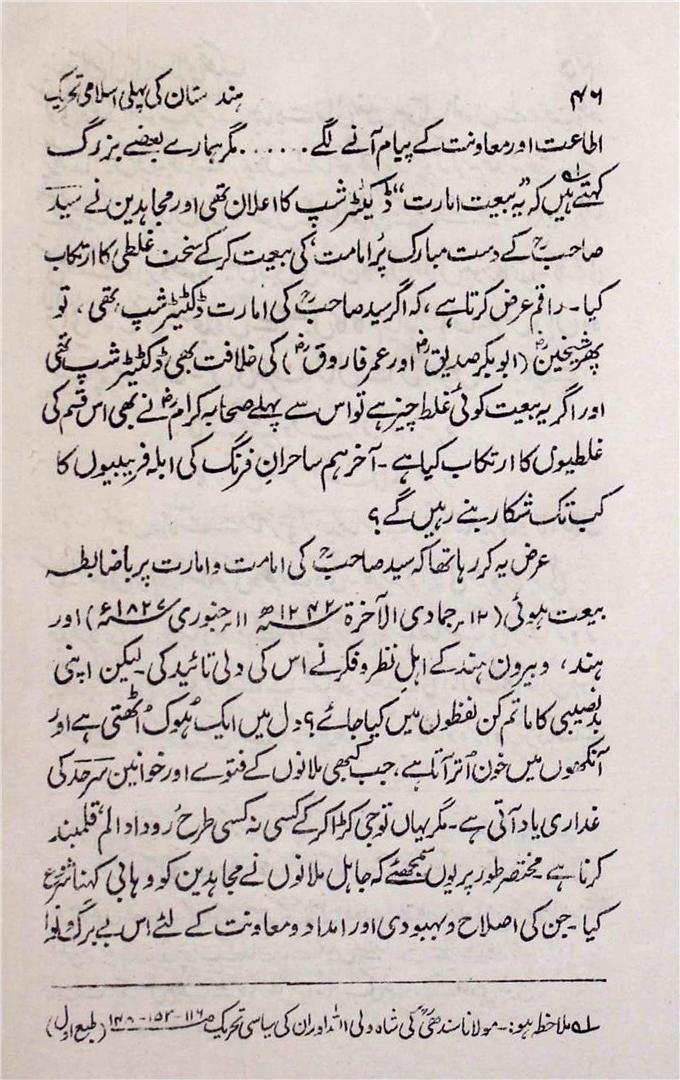 ۴۶ ہندستان کی پہلی اسلامی تحریک
اطاعت اور معاونت کے پیام آنے لگے . . . . . . مگر ہمارے بعضے بزرگ
کہتے ہیں کہ ”یہ بیعت امارت“ ڈکٹیٹر شپ کا اعلان تھی اور مجاہدین نے سید
صاحبؒ کے دست مبارک پر ’امامت‘ کی بیعت کر کے سخت غلطی کا ارتکاب
کیا ۔ راقم عرض کرتا ہے ، کہ اگر سید صاحبؒ کی امارت ڈکٹیٹر شپ تھی ، تو
پھر شیخینؓ (ابوبکر صدیقؓ اور عمر فاروقؓ) کی خلافت بھی ڈکٹیٹر شپ تھی
اور اگر یہ بیعت کوئی غلط چیز ہے تو اس سے پہلے صحابہ کرامؓ نے بھی اس قسم کی
غلطیوں کا ارتکاب کیا ہے ۔ آخر ہم ساحرانِ فرنگ کی ابلہ فریبیوں کا
کب تک شکار بنے رہیں گے ؟
عرض یہ کر رہا تھا کہ سید صاحبؒ کی امامت و امارت پر باضابطہ
بیعت ہوئی (۱۲ ر جمادی الآخرۃ ۱۲۴۲ھ ۱۱ ر جنوری ۱۸۲۷ء) اور
ہند ، و بیرون ہند کے اہلِ نظر و فکر نے اس کی دلی تائید کی ۔ لیکن اپنی
بدنصیبی کا ماتم کن لفظوں میں کیا جائے ؟ دل میں ایک ہُوک اُٹھتی ہے اور
آنکھوں میں خون اُتر آتا ہے ، جب کبھی ملانوں کے فتوے اور خوانین سرحد کی
غداری یاد آتی ہے ۔ مگر یہاں تو جی کڑا کر کے کسی نہ کسی طرح ’روداد الم‘ قلمبند
کرنا ہے ۔ مختصر طور پر یوں سمجھئے کہ جاہل ملانوں نے مجاہدین کو وہابی کہنا شروع
کیا ۔ جن کی اصلاح و بہبودی اور امداد و معاونت کے لئے اس بے برگ و نوا
۱ ملاحظہ ہو :۔ مولانا سندھیؒ کی شاہ ولی اللہ اور ان کی سیاسی تحریک ص ۱۱۶ - ۱۵۲ - (طبع اول)